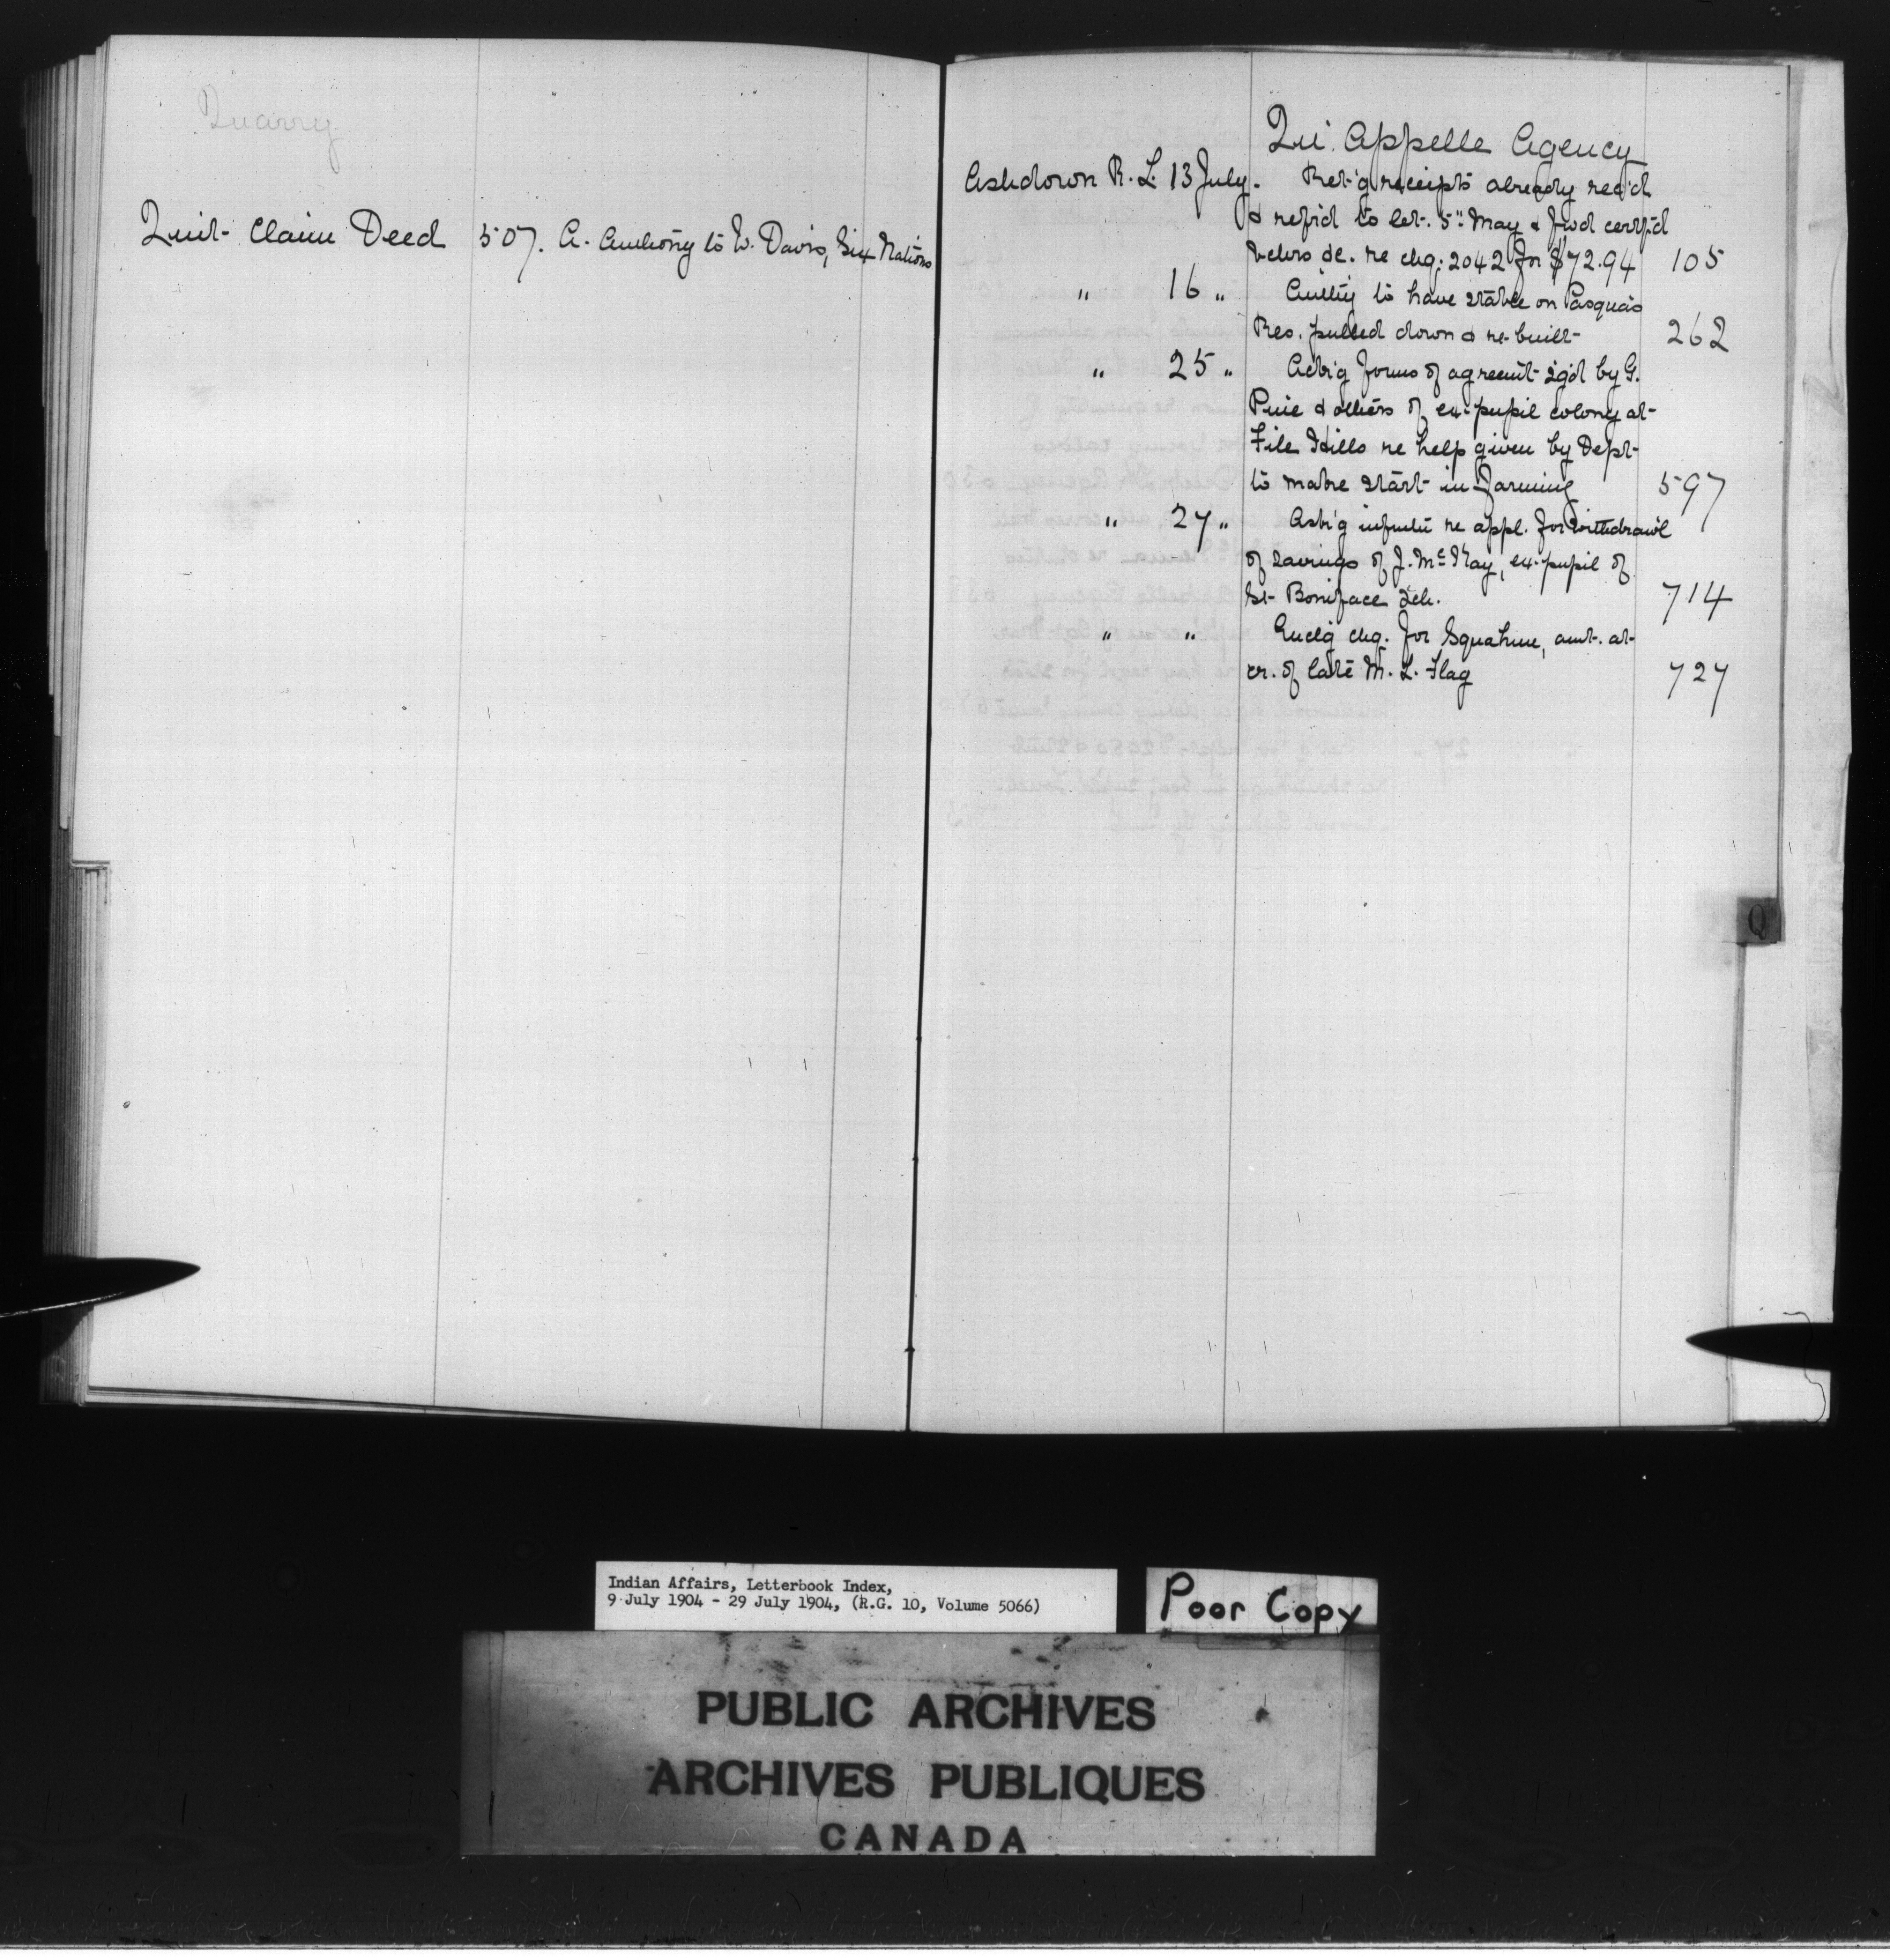 Quarry
Quit Claim Deed 507. A. Anthony to W. Davis, Six Nations
Qu'Appelle Agency
Ashdown R. L. 13 July. Ret'g receipts already rec'd
& ref'd to let. 5" May & fwd certf'd
vchrs &c. re chq. 2042 for $72.94 105
" 16 " Auth'y to have stable on Pasqua's
Res. pulled down & re-built 262
" 25 " Ack'g forms of agreemt sg'd by G.
& others of ex-pupil colony at
File Hills re help given by Dept
to make start in farming 597
" 27 " Ask'g inform re appl. for withdraw'l
of savings of J. McKay, ex-pupil of
St Boniface Sch. 714
" " Encl'g chq. for Squahun, amt. at
cr. of late M. L. Flag 727
Q
Indian Affairs, Letterbook Index,
9 July 1904 - 29 July 1904, (R.G. 10, Volume 5066)
Poor Copy
PUBLIC ARCHIVES
ARCHIVES PUBLIQUES
CANADA